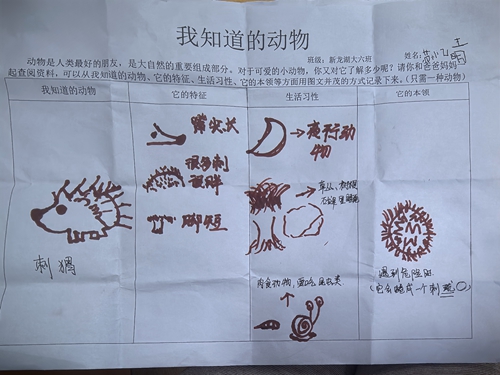 我知道的动物
班级：新龙湖大六班
姓名：
动物是人类最好的朋友，是大自然的重要组成部分。对于可爱的小动物，你又对它了解多少呢？请你和爸爸妈妈一
起查阅资料，可以从我知道的动物、它的特征、生活习性、它的本领等方面用图文并茂的方式记录下来。（只需一种动物）
我知道的动物
它的特征
生活习性
它的本领
刺猬
嘴尖长
很多刺
硬
脚短
夜行动
物
草丛、树根
石
肉食动物，
遇到危险
（它会 成一个刺